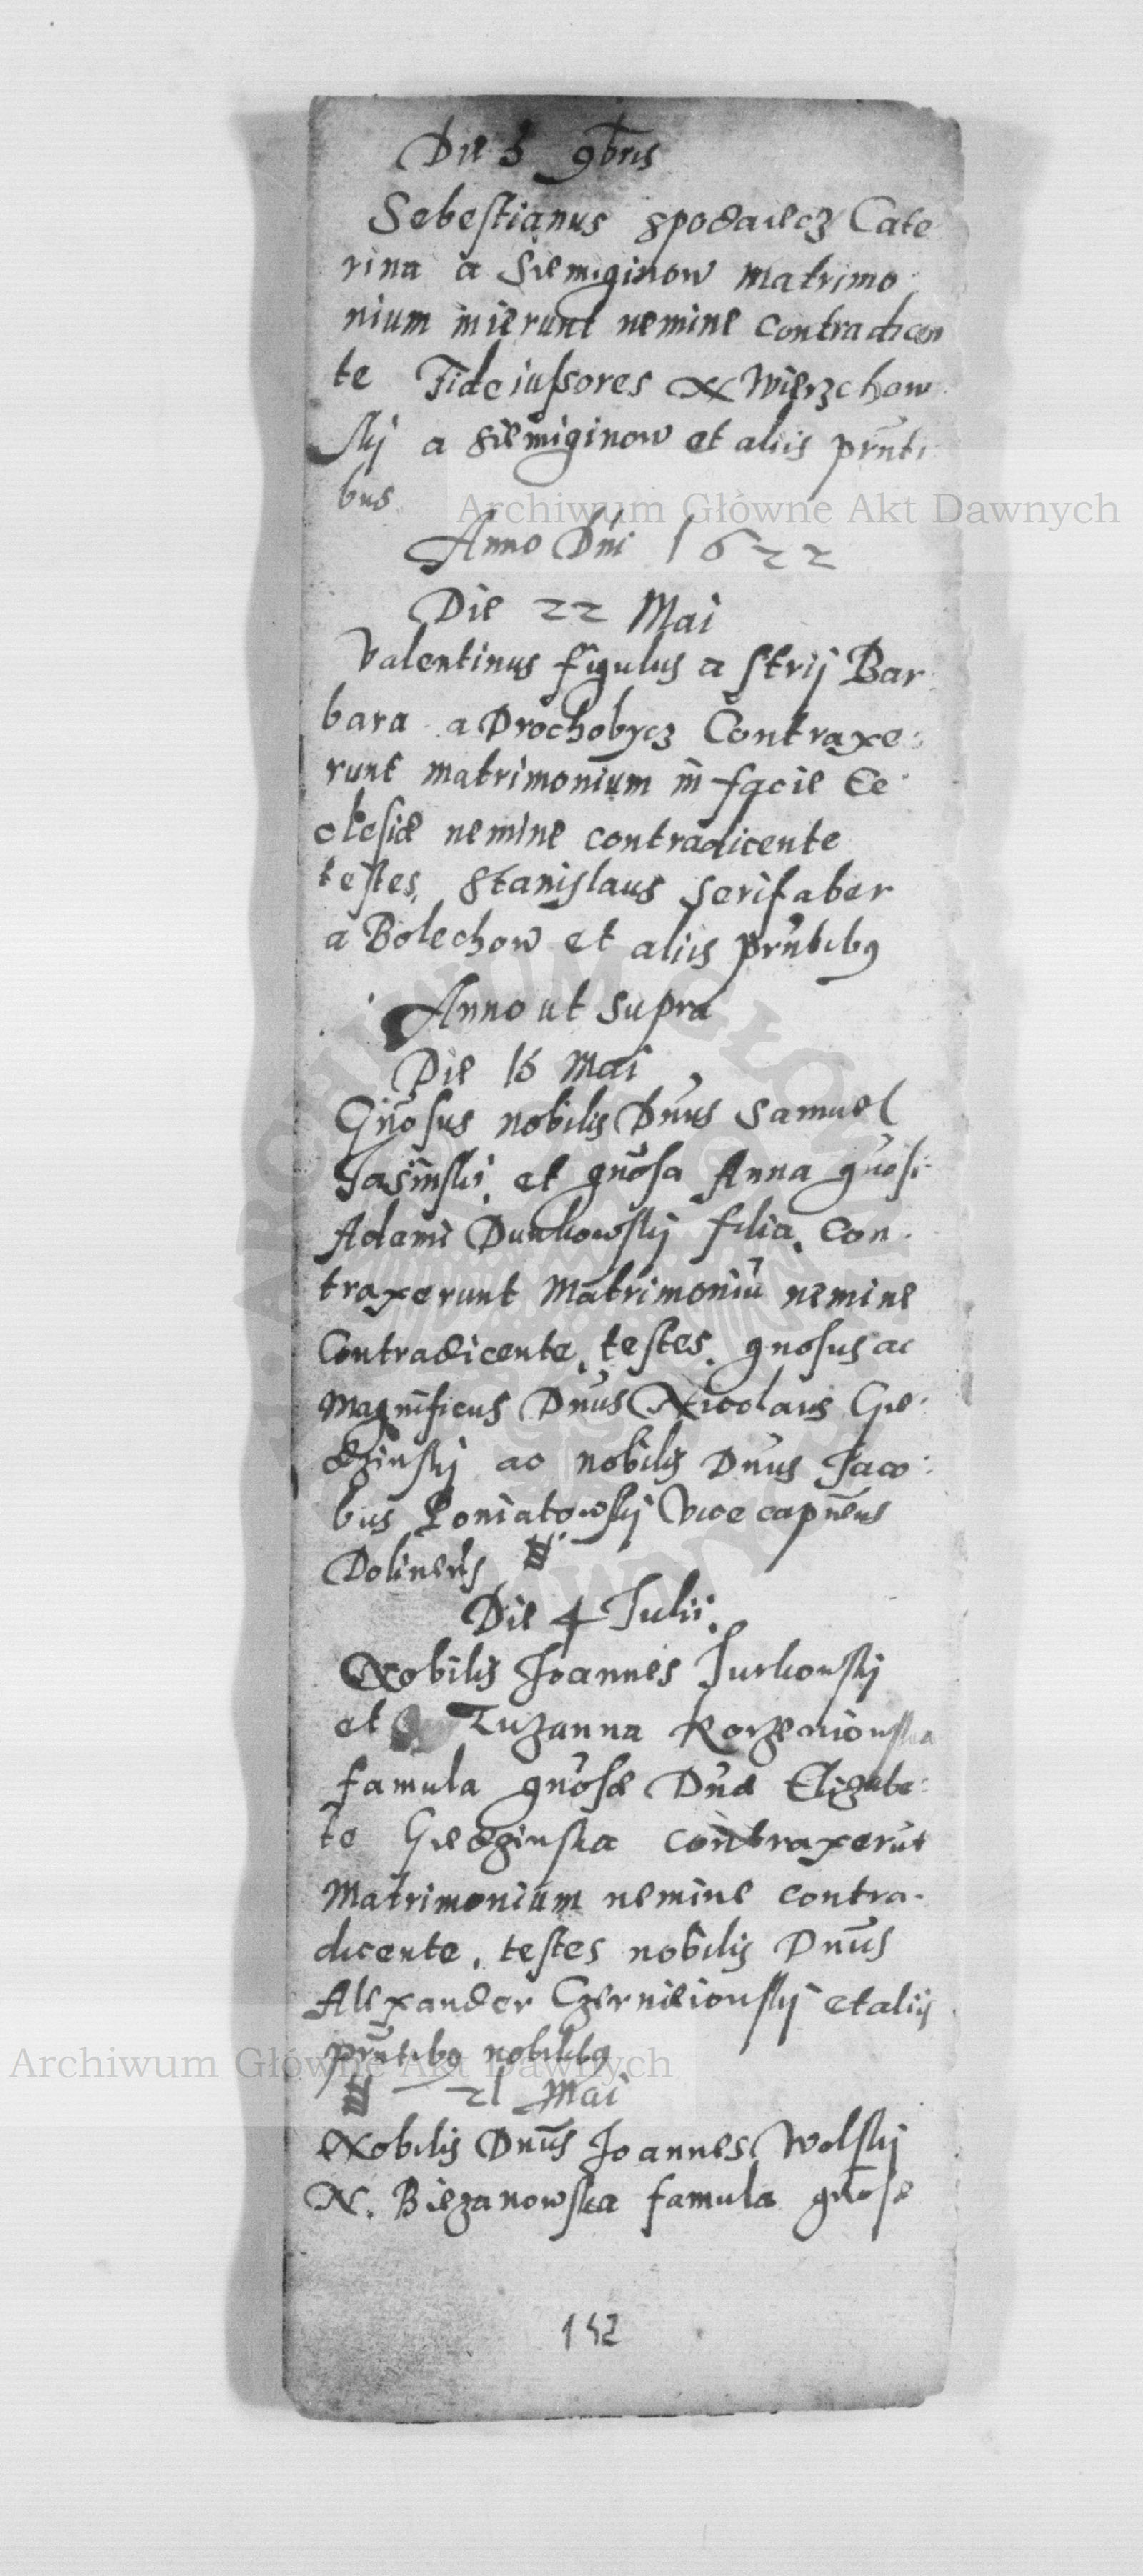 Die 3 9bris
Sebestianus Spodaiecz Cate
rina a Siemiginow matrimo
nium inierunt nemine contradicen
te Fideiussores N Wierzchow
skj a Siemiginow et aliis prnti
bus
Archiwum Główne Akt Dawnych
Anno Dni 1622
Die 22 Mai
Valentinus figulus a Strij Bar
bara a Drochobycz Contraxe:
runt matrimonium in facie Ec
clesiæ nemine contradicente
testes, Stanislaus Serifaber
a Bolechow et aliis prntibg
Anno ut supra
Die 16 Mai
Gnosus nobilis Dnus Samuel
Jasinski, et gnosa Anna gnosi
Adami Dunkowskj filia, Con
traxerunt Matrimoniū nemine
Contradicente, testes, gnosus ac
Magnificus Dnus Nicolaus Gie
dzinskj ac nobilis Dnus Jaco:
bus Poniatowskj Vice capneus
Dolinens
Die 4 Julii.
Nobilis Joannes Turkowskj
et Zuzanna Korzeniowska
famula gnosæ Dnæ Elizabe:
te Giedzinska contraxerūt
Matrimonium nemine contra
dicente, testes nobilis Dnus
Alexander Czernieiowskj et alijs
prntibg nobilibg
Archiwum Główne Akt Dawnych
21 Mai
Nobilis Dnus Joannes Wolskj
N. Biezanowska famula gnosæ
142